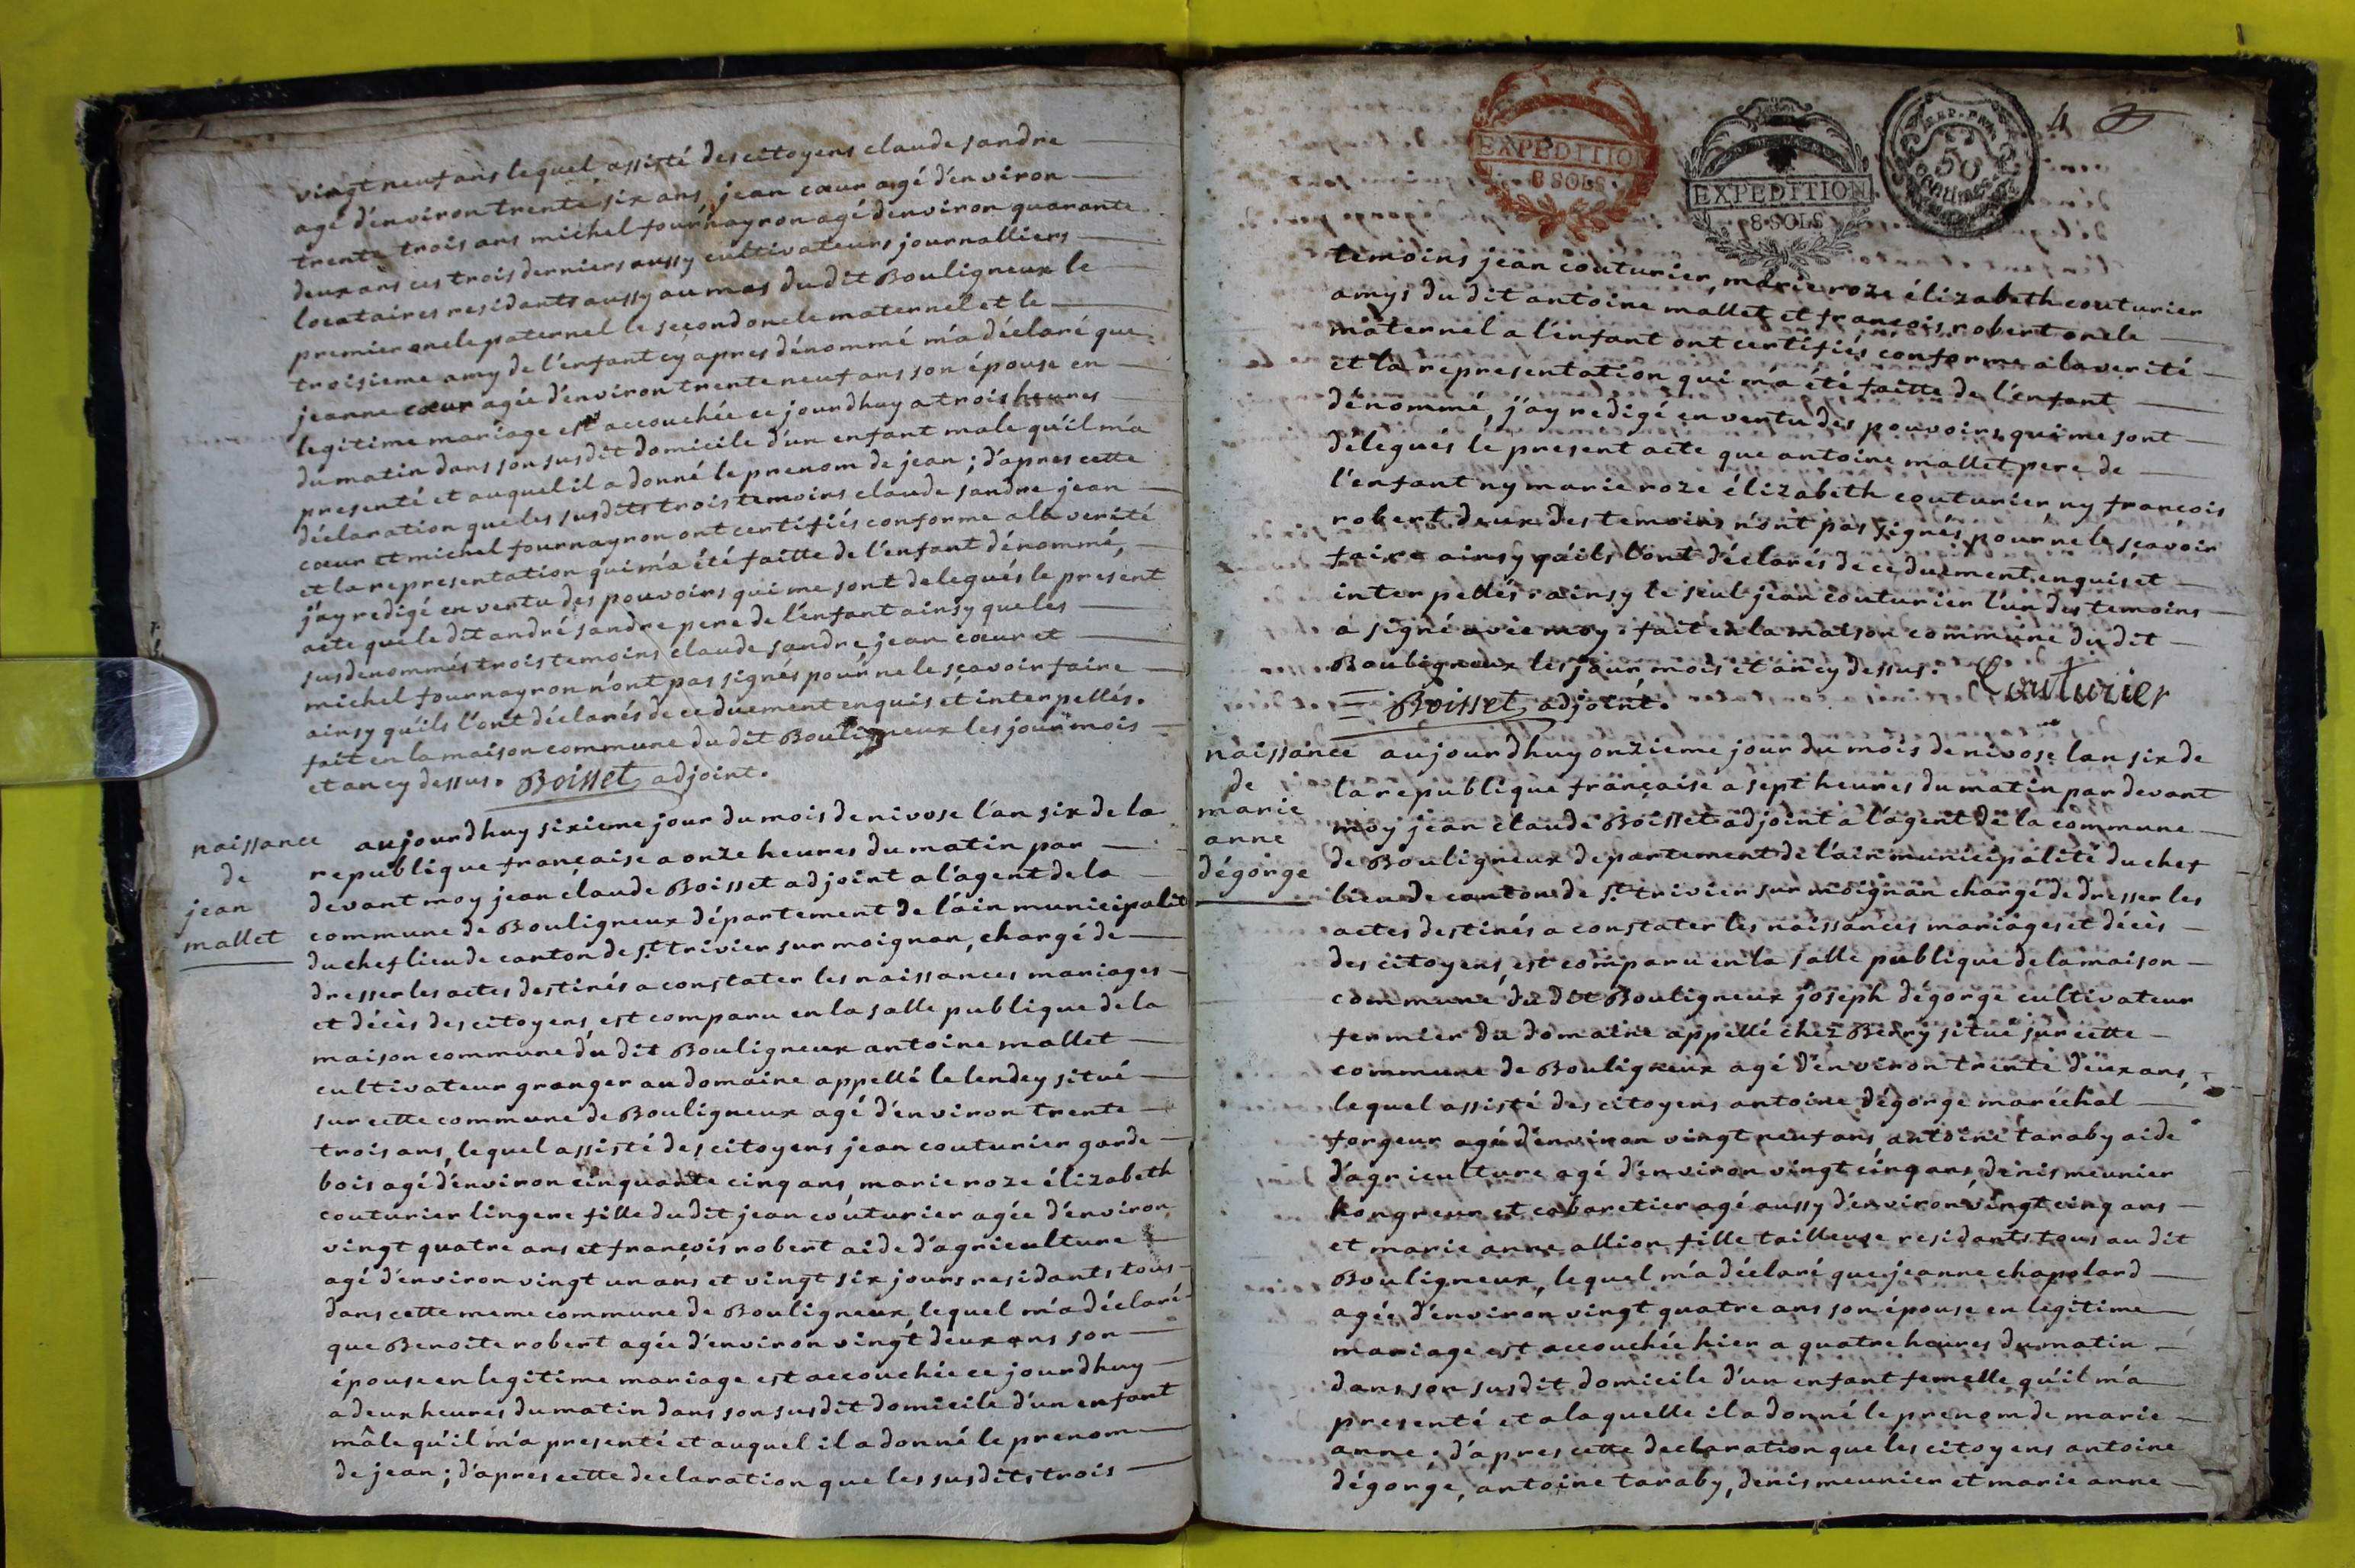 vingt neuf ans lequel assisté des citoyens claude sandre
agé d'environ trente six ans, jean cœur agé d'environ
trente trois ans michel fournayron agé d'environ quarante
deux ans ces trois derniers aussy cultivateurs journalliers
locataires residants aussy au mas du dit Bouligneux le
premier oncle paternel le second oncle maternel et le
troisieme amy de l'enfant cy apres dénommé m'a déclaré que
jeanne cœur agée d'environ trente neuf ans son épouse en
legitime mariage est accouchée ce jourdhuy a trois heures
du matin dans son susdit domicile d'un enfant male qu'il m'a
presenté et auquel il a donné le prenom de jean ; d'apres cette
déclaration que les susdits trois temoins claude sandre jean
cœur et michel fournayron ont certifiés conforme a la verité
et la representation qui m'a été faitte de l'enfant dénommé,
j'ay redigé en vertu des pouvoirs qui me sont delegués le present
acte que le dit andré sandre pere de l'enfant ainsy que les
susdenommés trois temoins claude sandre, jean cœur et
michel fournayron n'ont pas signés pour ne le sçavoir faire
ainsy qu'ils l'ont déclarés de ce duement enquis et interpellés.
fait en la maison commune du dit Bouligneux les jour mois
et an cy dessus. Boisset adjoint.
naissance
de
jean
mallet
aujourdhuy sixieme jour du mois de nivose l'an six de la
republique française a onze heures du matin par
devant moy jean claude Boisset adjoint a l'agent de la
commune de Bouligneux département de l'ain municipalité
du chef lieu de canton de st. trivier sur moignan, chargé de
dresser les actes destinés a constater les naissances mariages
et décès des citoyens, est comparu en la salle publique de la
maison commune du dit Bouligneux antoine mallet
cultivateur granger au domaine appellé le lendey situé
sur cette commune de Bouligneux agé d'environ trente
trois ans, lequel assisté des citoyens jean couturier garde
bois agé d'environ cinquante cinq ans, marie roze élizabeth
couturier lingere fille du dit jean couturier agée d'environ
vingt quatre ans et françois robert aide d'agriculture
agé d'environ vingt un ans et vingt six jours residants tous
dans cette meme commune de Bouligneux, lequel m'a déclaré
que Benoite robert agée d'environ vingt deux ans son
épouse en legitime mariage est accouchée ce jourdhuy
a deux heures du matin dans son susdit domicile d'un enfant
mâle qu'il m'a presenté et auquel il a donné le prenom
de jean ; d'apres cette declaration que les susdits trois
EXPEDITION
8 SOLS
EXPEDITION
8 SOLS
REP. FRA.
50
centimes
4
temoins jean couturier, marie roze élizabeth couturier
amys du dit antoine mallet et françois robert oncle
maternel a l'enfant ont certifiés conforme a la verité
et la representation qui m'a été faitte de l'enfant
dénommé, j'ay redigé en vertu des pouvoirs qui me sont
délegués le present acte que antoine mallet pere de
l'enfant ny marie roze élizabeth couturier ny françois
robert deux des temoins n'ont pas signés pour ne le sçavoir
faire ainsy qu'ils l'ont déclarés de ce duement enquis et
interpellés. ainsy le seul jean couturier l'un des temoins
a signé avec moy. fait en la maison commune du dit
Bouligneux les jour, mois et an cy dessus. Couturier
Boisset adjoint.
naissance
de
marie
anne
dégorge
aujourdhuy onzieme jour du mois de nivose lan six de
la republique française a sept heures du matin par devant
moy jean claude Boisset adjoint a l'agent de la commune
de Bouligneux departement de l'ain municipalité du chef
lieu de canton de st. trivier sur moignan chargé de dresser les
actes destinés a constater les naissances mariages et décès
des citoyens, est comparu en la salle publique de la maison
commune du dit Bouligneux joseph dégorge cultivateur
fermier du domaine appellé chez Berry situé sur cette
commune de Bouligneux agé d'environ trente deux ans,
lequel assisté des citoyens antoine dégorge maréchal
forgeur agé d'environ vingt neuf ans, antoine taraby aide
d'agriculture agé d'environ vingt cinq ans, denis meunier
hongreur et cabaretier agé aussy d'environ vingt cinq ans
et marie anne allion fille tailleuse residants tous au dit
Bouligneux, lequel m'a déclaré que jeanne chapolard
agée d'environ vingt quatre ans son épouse en legitime
mariage est accouchée hier a quatre heures du matin
dans son susdit domicile d'un enfant femelle qu'il m'a
presenté et a laquelle il a donné le prenom de marie
anne ; d'apres cette declaration que les citoyens antoine
dégorge, antoine taraby, denis meunier et marie anne